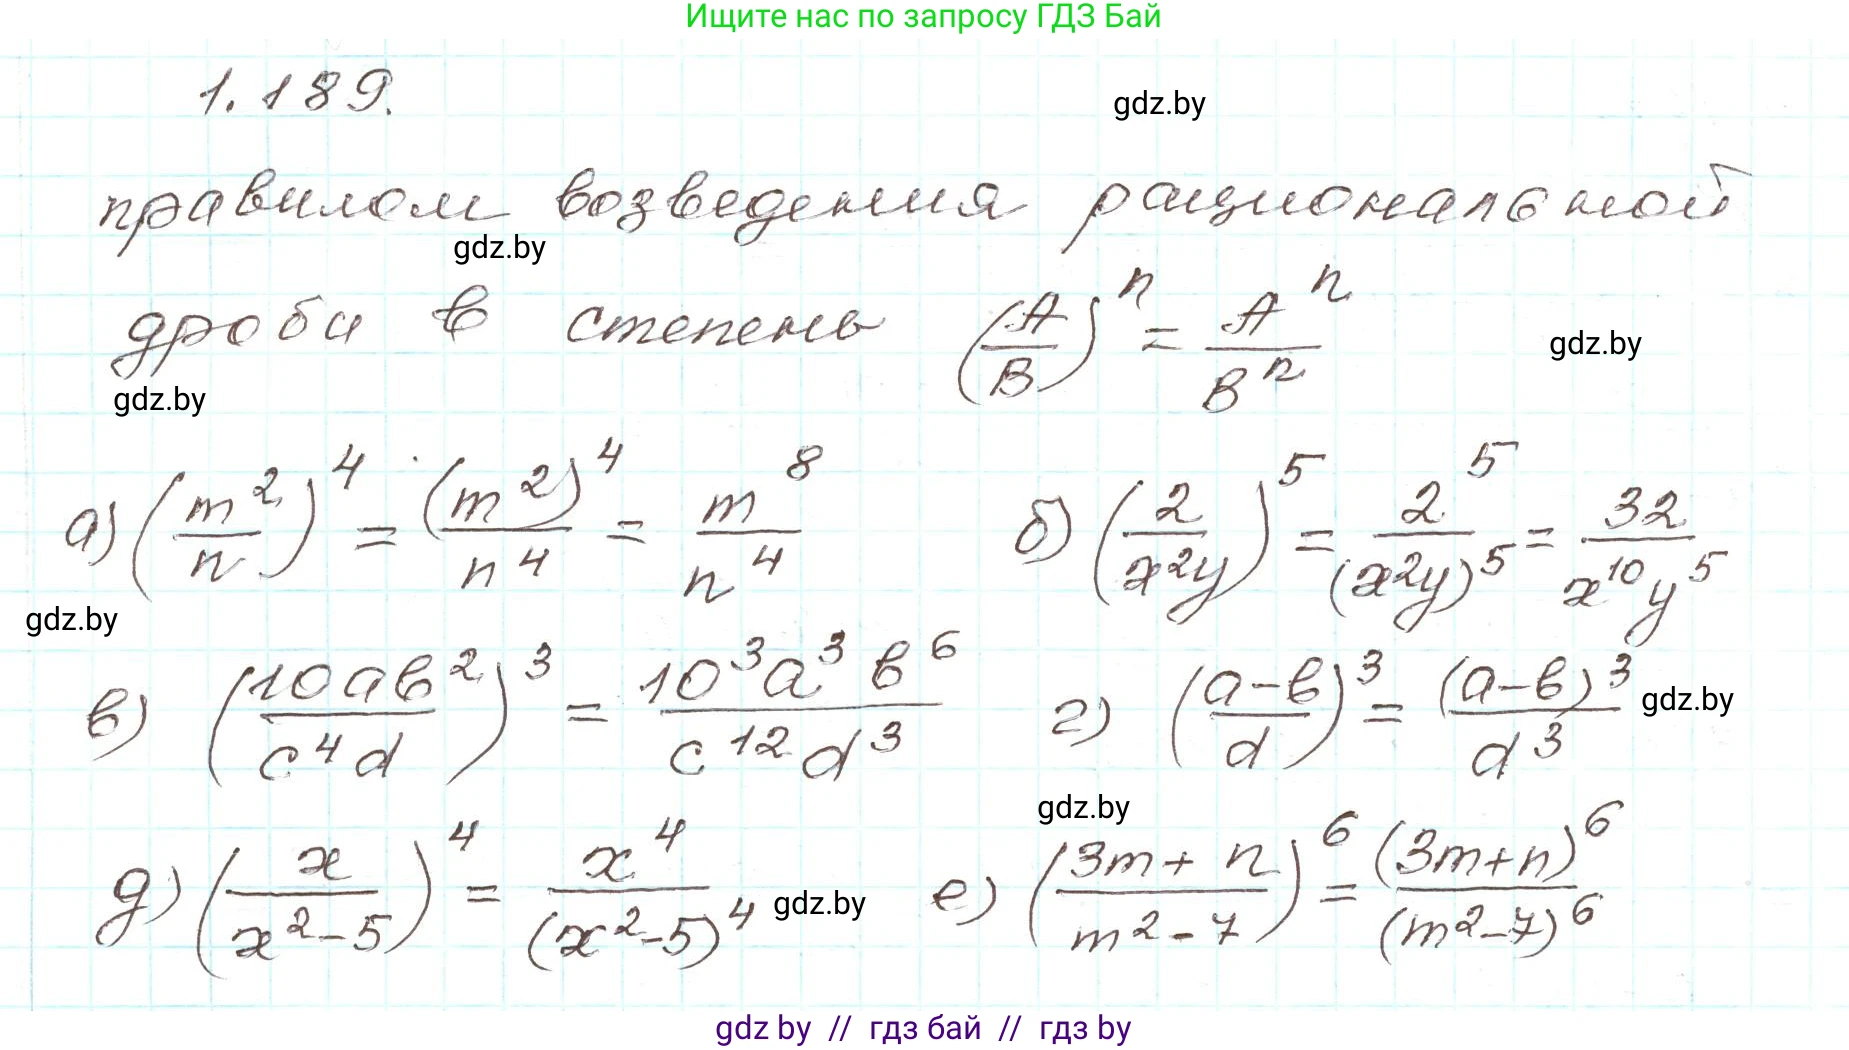 Ищите нас по запросу ГДЗ Бай
1.189.
gdz.by
правилом возведения рациональной
gdz.by
дроби в степень (A/B)^n = A^n/B^n
gdz.by
gdz.by
а) (m^2/n)^4 = (m^2)^4/n^4 = m^8/n^4 б) (2/(x^2y))^5 = 2^5/(x^2y)^5 = 32/(x^10y^5)
gdz.by
в) (10ab^2/(c^4d))^3 = 10^3a^3b^6/(c^12d^3) г) ((a-b)/d)^3 = (a-b)^3/d^3
gdz.by
gdz.by
д) (x/(x^2-5))^4 = x^4/(x^2-5)^4 е) ((3m+n)/(m^2-7))^6 = (3m+n)^6/(m^2-7)^6
gdz.by
gdz by // гдз бай // гдз by